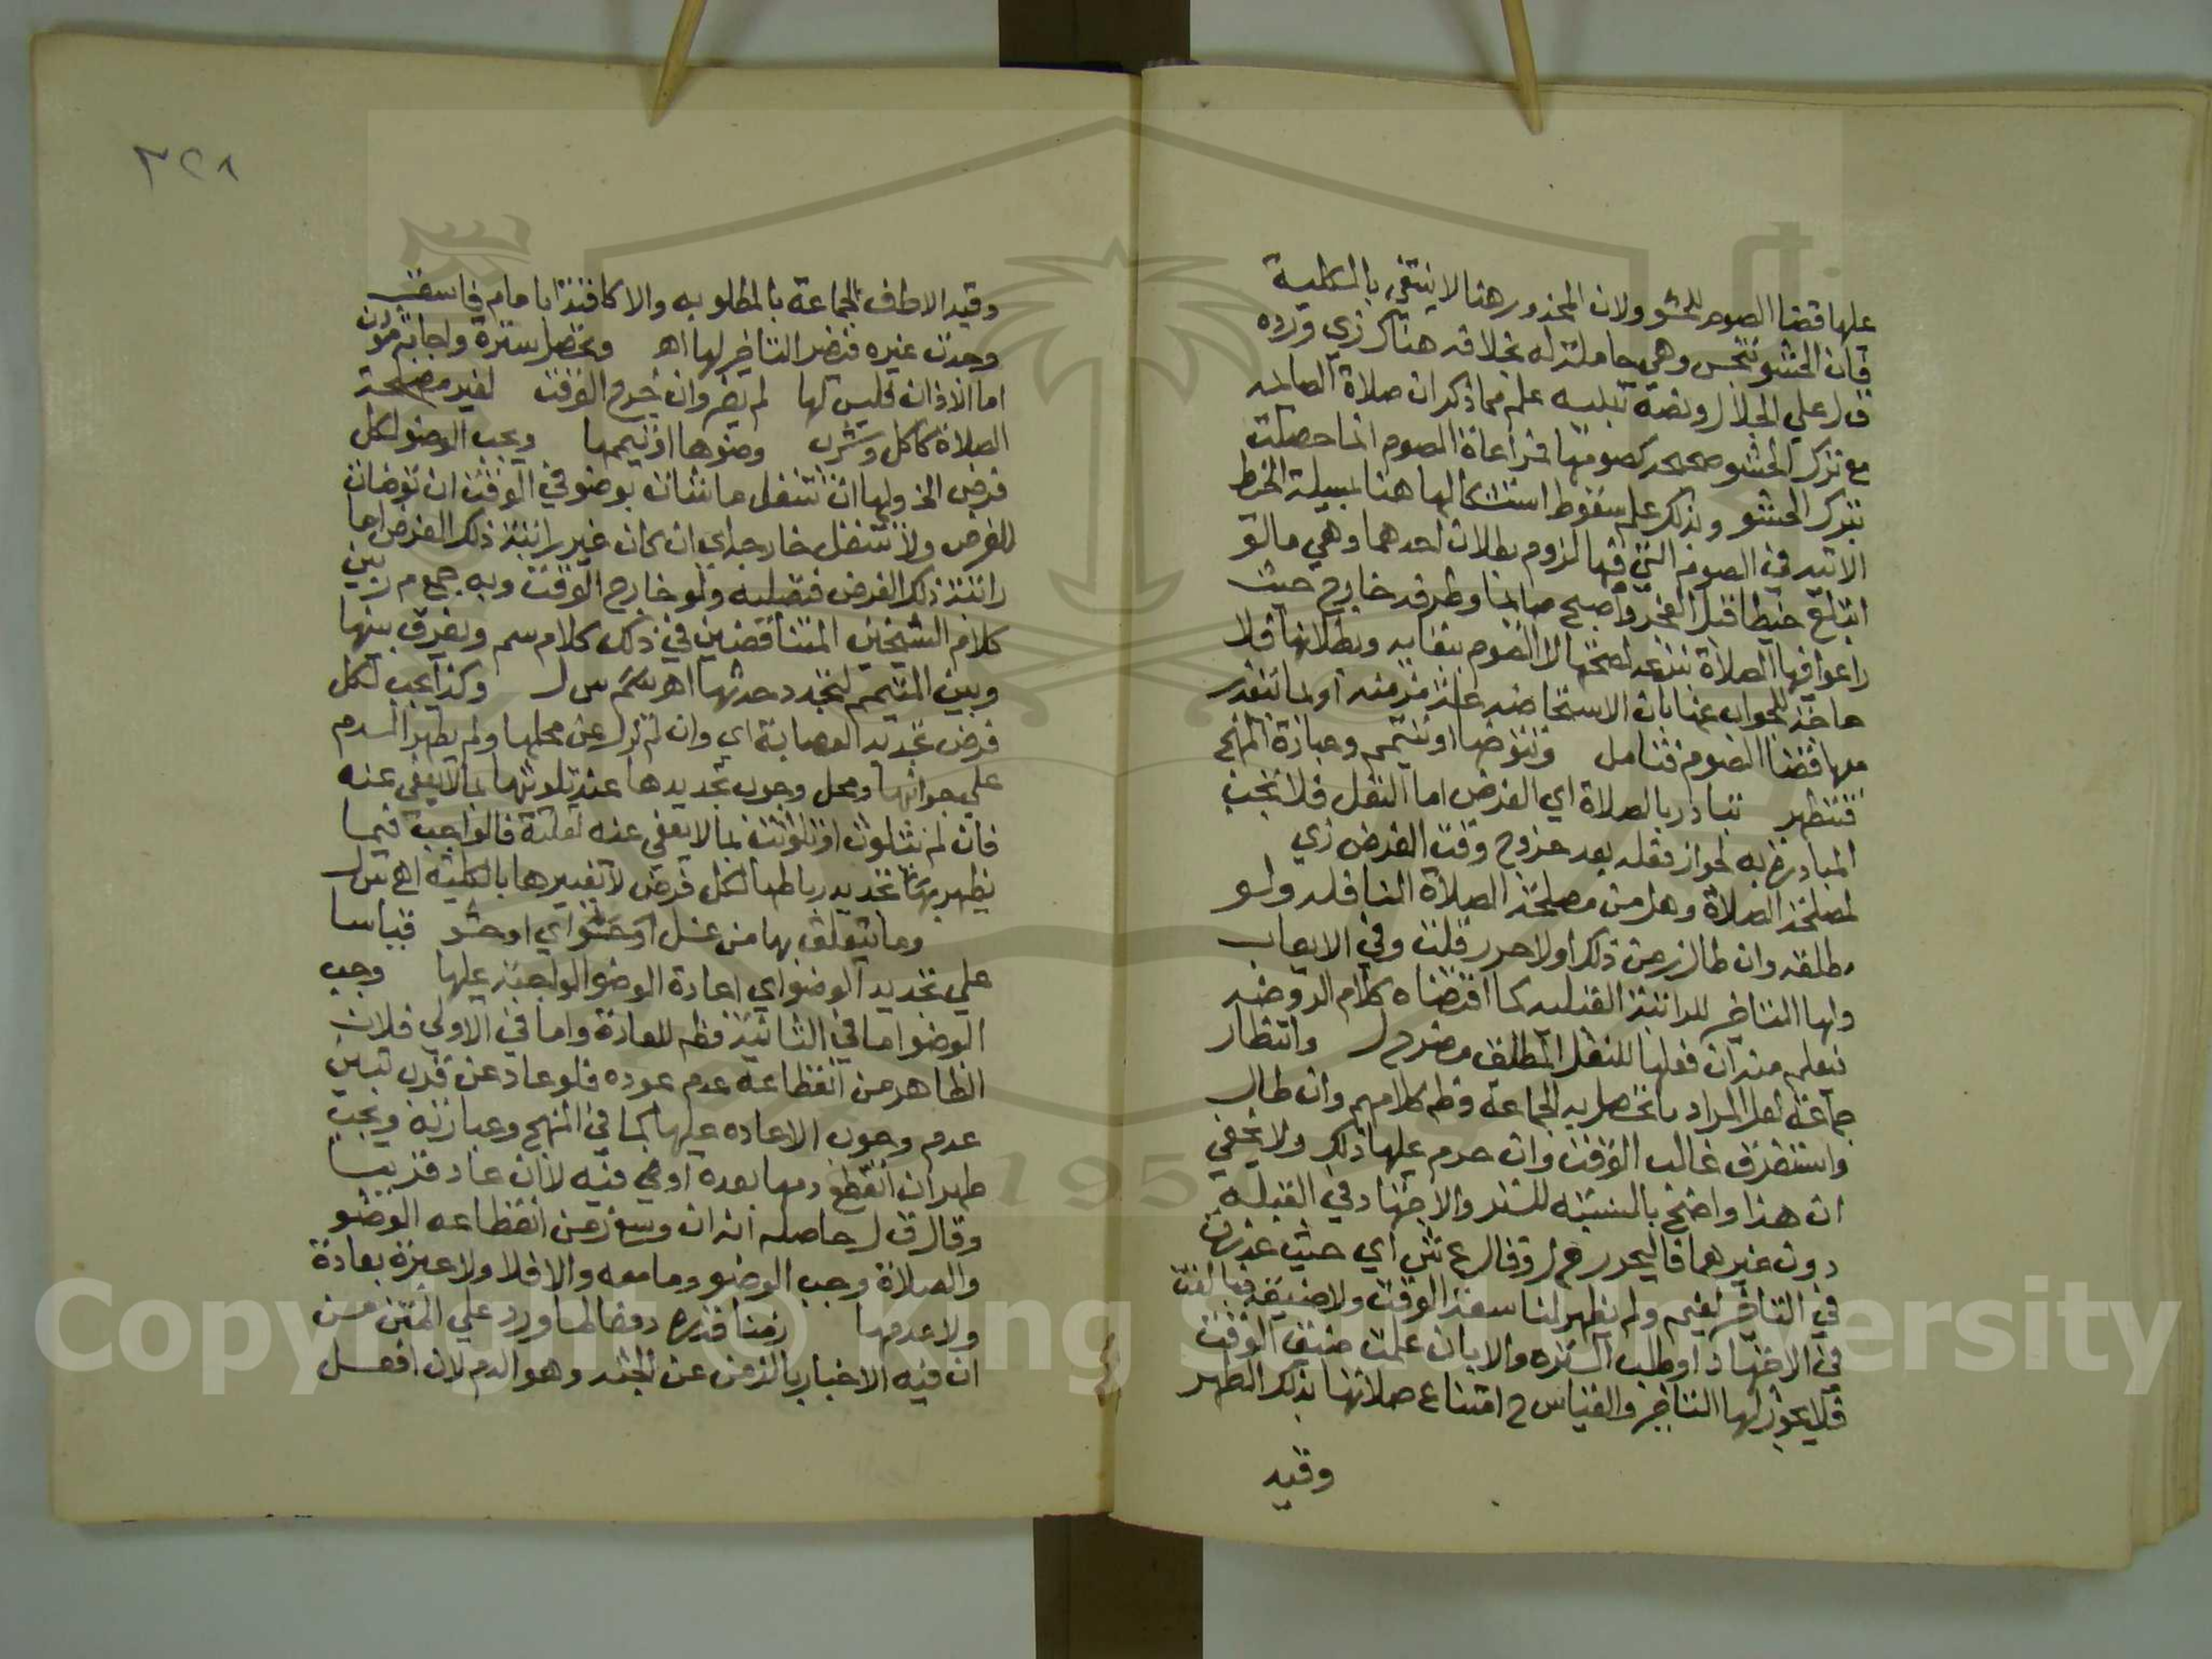 عليها قضا الصوم للحشو ولان المحذور هنا لا ينتفي بالكلية
فان الحشو تنجس وهي حاملة له بخلافه هناك زي ورده
ق ل علي الجلال ونصه تنبيه علم مما ذكر ان صلاة الصائمه
مع ترك الحشو صحيحه كصومها فمراعاة الصوم انما حصلت
بترك الحشو وبذلك علم سقوط استشكالها هنا بمسيلة الخيط
الاتيه في الصوم التي فيها لزوم بطلان احدهما وهي ما لو
ابتلع خيطا قبل الفجر واصبح صائما وطرفه خارج حيث
راعوا فيها الصلاة بنزعه لصحتها لا الصوم ببقايه وبطلانها فلا
حاجة للجواب عنها بان الاستحاضه علة مزمنه او لما يتعذر
معها قضا الصوم فتامل وتتوضا او تتيمم وعبارة المنهج
فتتطهر تبادر بالصلاة اي الفرض اما النفل فلا تجب
المبادرة به لجواز فعله بعد خروج وقت الفرض زي
لمصلحة الصلاة وهل من مصلحة الصلاة النافله ولو
مطلقه وان طال زمن ذلك اولا حرر قلت وفي الايعاب
ولها التاخير للراتبة القبليه كما اقتضاه كلام الروضه
نتعلم منه ان فعلها للنفل المطلق مضر ح ل وانتظار
جماعة لعل المراد ما تحصل به الجماعة وظ كلامهم وان طال
واستغرق غالب الوقت وان حرم عليها ذلك ولا يخفي
ان هذا واضح بالنسبة للستر والاجتهاد في القبلة
دون غيرهما فاليحرر ح ل وقال ع ش اي حيث عذرت
في التاخير لغيم ولم يظهر لنا سعة الوقت ولا ضيقه فبالغت
في الاجتهاد او طلب الستره والا بان علمت ضيق الوقت
فلا يجوز لها التاخير والقياس ح امتناع صلاتها بذلك الطهر
وقيد
٣٢٨
وقيد الاطف الجماعة بالمطلوبه والا كاقتدا بامام فاسق
وجدت غيره فيضر التاخير لها اهـ وتحصل سترة واجابة موذن
اما الاذان فليس لها لم يضر وان خرج الوقت لغير مصلحة
الصلاة كاكل وشرب وضوها او تيممها ويجب الوضو لكل
فرض الخ ولها ان تتنفل ما شات بوضو في الوقت ان توضات
للفرض ولا تتنفل خارجه اي ان كان غير راتبة ذلك الفرض اما
راتبة ذلك الفرض فتصليه ولو خارج الوقت وبه جمع م ر بين
كلام الشيخين المتناقضين في ذلك كلام سم ويفرق بينها
وبين المتيمم لتجدد حدثها اهـ سم س ل وكذا يجب لكل
فرض تجديد العصابة اي وان لم تزل عن محلها ولم يظهر الدم
علي جوانبها ومحل وجوب تجديدها عند تلوثها بما لا يعفي عنه
فان لم تتلوث او تلوثت بما لا يعفي عنه لقلته فالواجب فيما
يظهر تجديد رباطها لكل فرض لا تغييرها بالكلية اهـ س ل
وما يتعلق بها من غسل او حشو اي او حشو قياسا
علي تجديد الوضو اي اعادة الوضو الواجبه عليها وجب
الوضو اما في الثانية فظ للعادة واما في الاولي فلان
الظاهر من انقطاعه عدم عوده فلو عاد عن قرب تبين
عدم وجوب الاعاده عليها كما في المنهج وعبارته ويجب
طهر ان انقطع دمها بعده او في فيه لا ان عاد قريبا
وقال ق ل حاصله انه ان وسع زمن انقطاعه الوضو
والصلاة وجب الوضو وما معه والا فلا ولا عبرة بعادة
ولا عدمها زمنا قدره دفعا لما ورد علي المتن من
ان فيه الاخبار بالزمن عن الجثة وهو الدم لان افعل